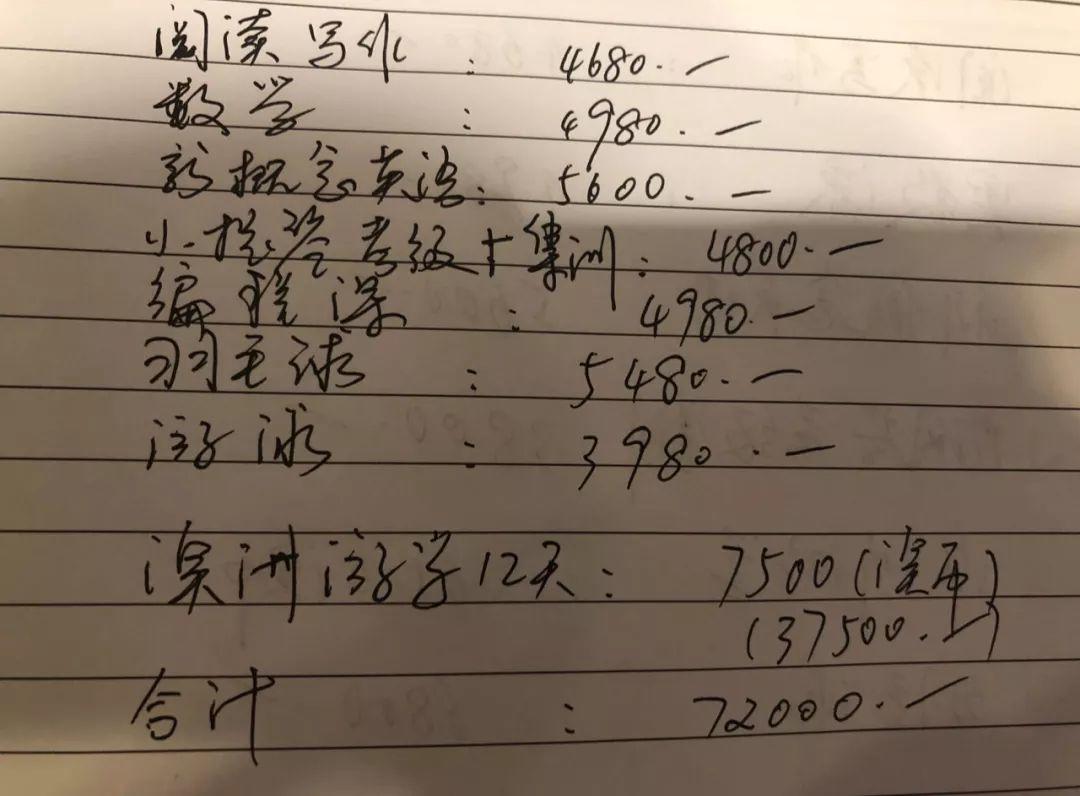 阅读写作 : 4680.一
数学 : 4980.一
新概念英语: 5600.一
小提琴考级+集训: 4800.一
编程课 : 4980.一
羽毛球 : 5480.一
游泳 : 3980.一
澳洲游学12天: 7500(澳币)
(37500.一)
合计 : 72000.一